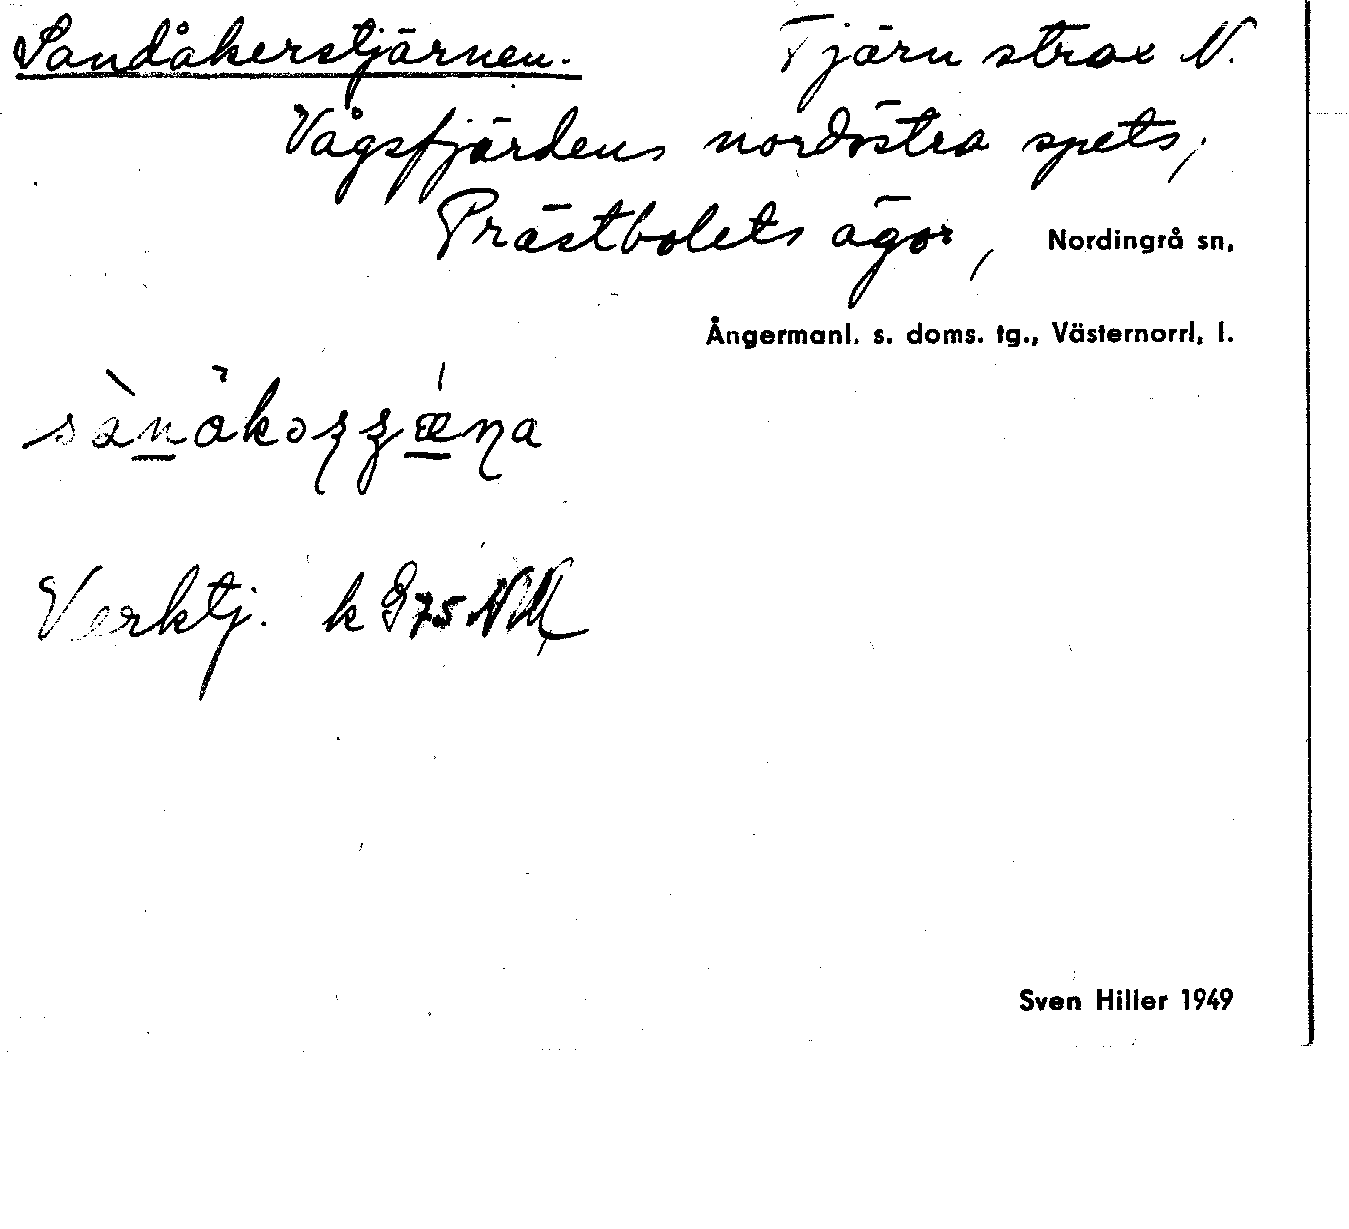 Sandåkerstjärnen. Tjärn strax N.
Vågsfjärdens nordöstra spets,
Prästbolets ägor, Nordingrå sn,
Ångermanl. s. doms. tg., Västernorrl. l.
Verktj. k
Sven Hiller 1949